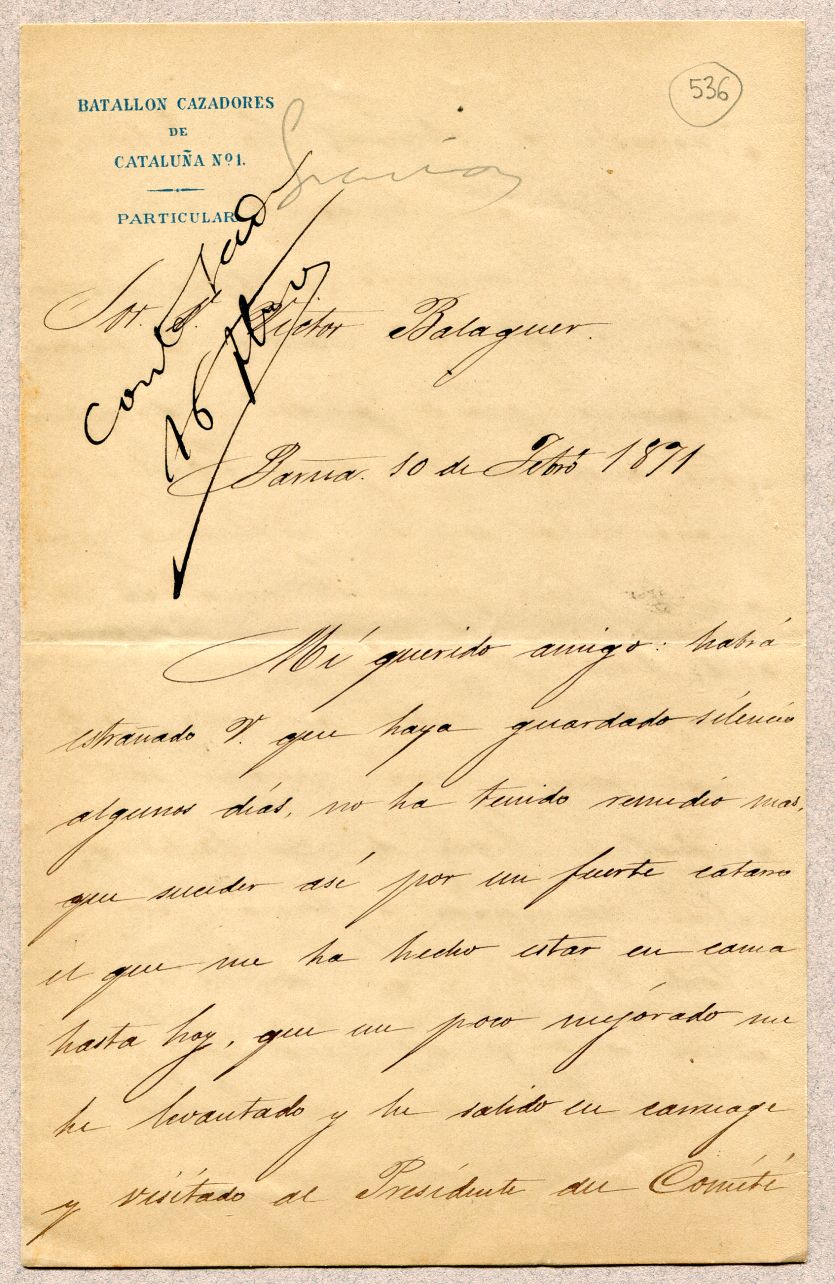 536
BATALLON CAZADORES
DE
CATALUÑA Nº1.
PARTICULAR
Sor. D. Victor Balaguer.
16
Barna. 10 de Febro 1871
Mi querido amigo: habrá
estrañado V. que haya guardado silencio
algunos días, no ha tenido remedio mas,
que suceder asi por un fuerte catarro
el que me ha hecho estar en cama
hasta hoy, que un poco mejorado me
he levantado y he salido en carruage
y visitado al Presidente del Comité